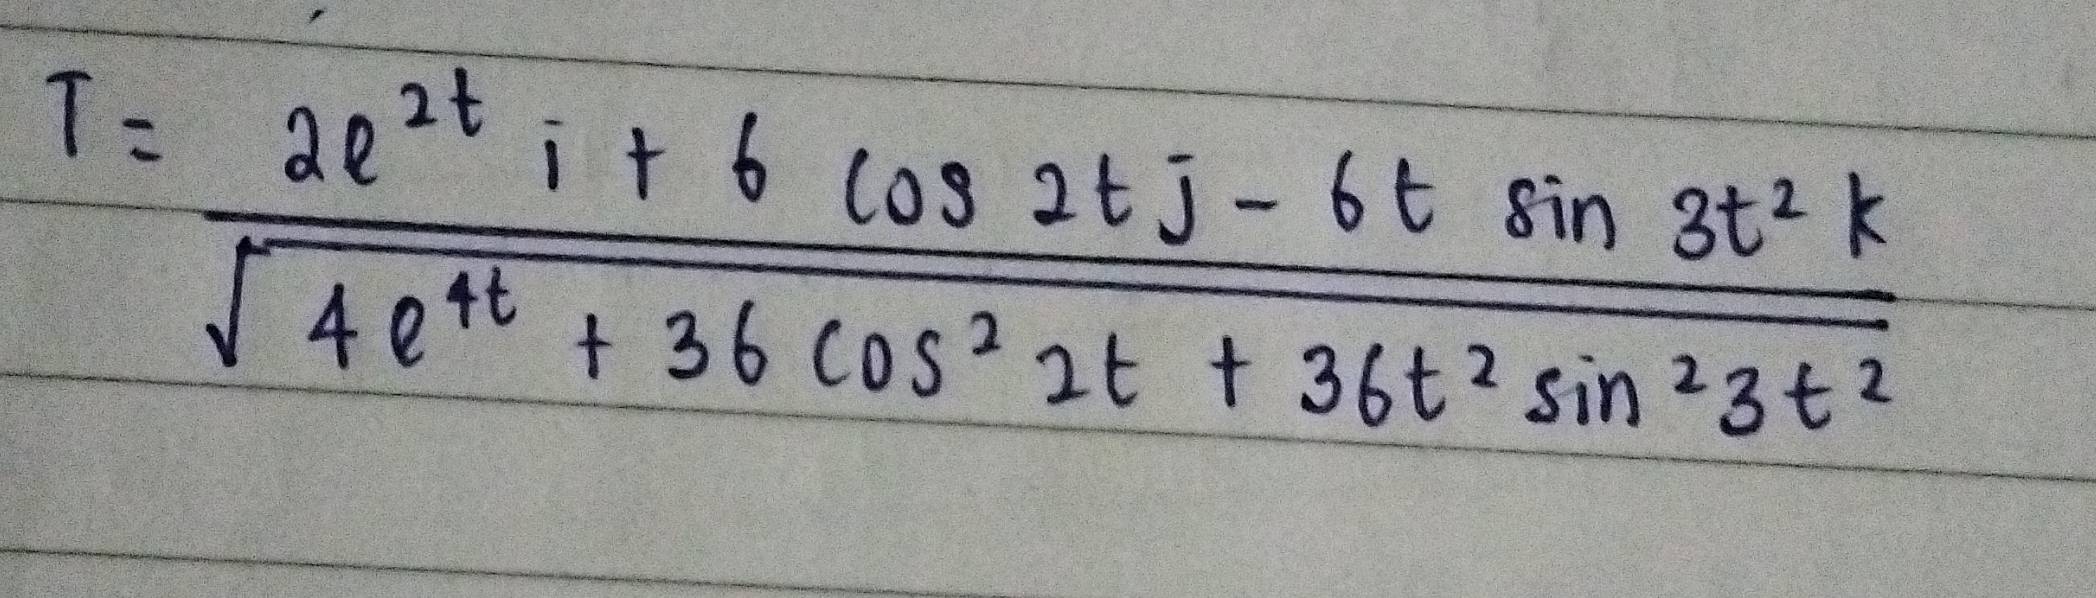 T = 2e^{2t} i + 6 cos 2t j - 6t sin 3t² k
√ 4e^{4t} + 36 cos² 2t + 36t² sin² 3t²